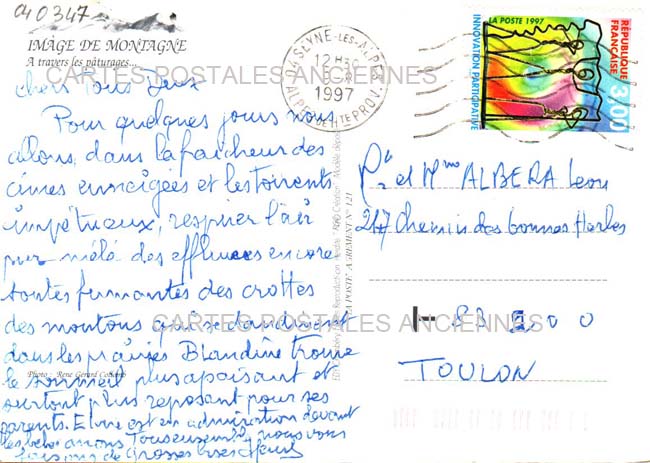 040347
IMAGE DE MONTAGNE
A travers les pâturages...
CARTES POSTALES ANCIENNES
04 SEYNE-LES-ALPES
12H
1997
ALPES DE HTE PROV.
LA POSTE 1997
RÉPUBLIQUE FRANÇAISE
INNOVATION PARTICIPATIVE
3,00
chers tous Deux
Pour quelques jours nous
allons, dans la fraicheur des
cimes enneigées et les torrents
impétueux, respirer l'air
pur mélé des effluves encore
toutes fumantes des crottes
des moutons qui se dandinent
dans les prairies Blandine trouve
le sommeil plus apaisant et
surtout plus reposant pour ses
parents. est en admiration devant
les ânons Tous nous vous
faisons de Grosses
et Mme ALBERA Leon
247 Chemin des bonnes Herbes
83 200
TOULON
CARTES POSTALES ANCIENNES
Photo : René Gérard
LA POSTE AGREMENT N° 121
Reproduction interdite